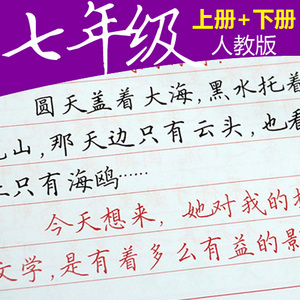 七年级
上册+下册
人教版
圆天盖着大海,黑水托着
山,那天边只有云头,也看
只有海鸥……
今天想来,她对我的
文学,是有着多么有益的影